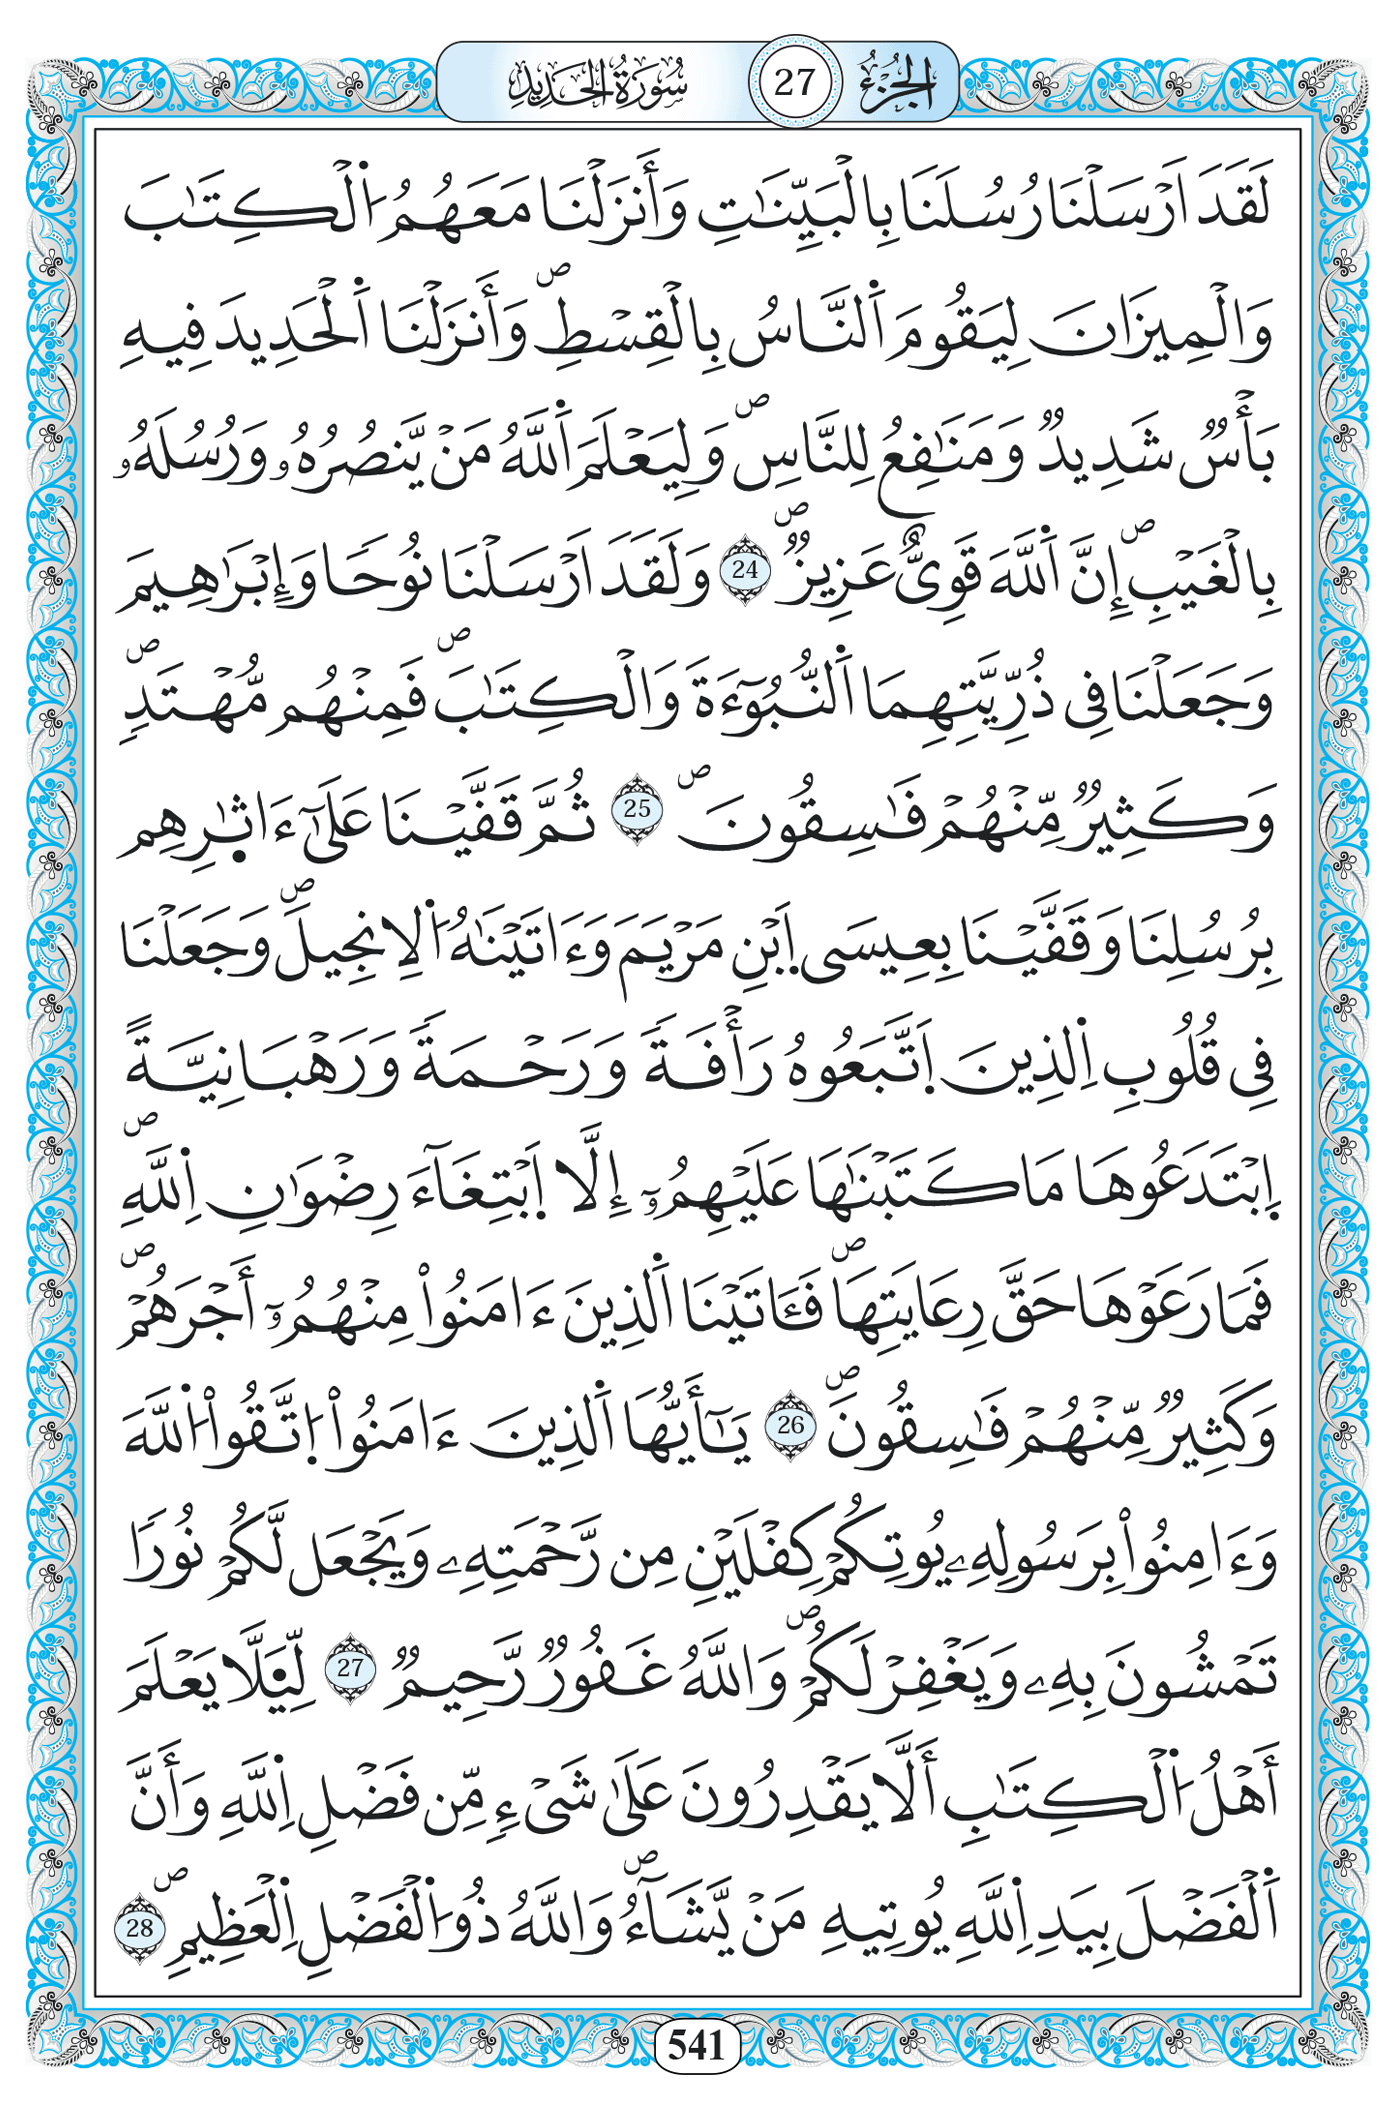 الجزء 27 سورة الحديد
لَقَدَ اَرْسَلْنَا رُسُلَنَا بِالْبَيِّنَٰتِ وَأَنزَلْنَا مَعَهُمُ اُ۬لْكِتَٰبَ
وَالْمِيزَانَ لِيَقُومَ اَ۬لنَّاسُ بِالْقِسْطِۖ وَأَنزَلْنَا اَ۬لْحَدِيدَ فِيهِ
بَأْسٞ شَدِيدٞ وَمَنَٰفِعُ لِلنَّاسِۖ وَلِيَعْلَمَ اَ۬للَّهُ مَنْ يَّنصُرُهُۥ وَرُسُلَهُۥ
بِالْغَيْبِۖ إِنَّ اَ۬للَّهَ قَوِيٌّ عَزِيزٞۖ 24 وَلَقَدَ اَرْسَلْنَا نُوحاٗ وَإِبْرَٰهِيمَ
وَجَعَلْنَا فِي ذُرِّيَّتِهِمَا اَ۬لنُّبُوٓءَةَ وَالْكِتَٰبَۖ فَمِنْهُم مُّهْتَدٖۖ
وَكَثِيرٞ مِّنْهُمْ فَٰسِقُونَۖ 25 ثُمَّ قَفَّيْنَا عَلَىٰٓ ءَاثٰ۪رِهِم
بِرُسُلِنَا وَقَفَّيْنَا بِعِيسَى اَ۪بْنِ مَرْيَمَ وَءَاتَيْنَٰهُ اُ۬لِانجِيلَۖ وَجَعَلْنَا
فِي قُلُوبِ اِ۬لذِينَ اَ۪تَّبَعُوهُ رَأْفَةٗ وَرَحْمَةٗ وَرَهْبَانِيَّةً
اِ۪بْتَدَعُوهَا مَا كَتَبْنَٰهَا عَلَيْهِمُۥٓ إِلَّا اَ۪بْتِغَآءَ رِضْوَٰنِ اِ۬للَّهِۖ
فَمَا رَعَوْهَا حَقَّ رِعَايَتِهَاۖ فَـَٔاتَيْنَا اَ۬لذِينَ ءَامَنُواْ مِنْهُمُۥٓ أَجْرَهُمْۖ
وَكَثِيرٞ مِّنْهُمْ فَٰسِقُونَۖ 26 يَٰٓأَيُّهَا اَ۬لذِينَ ءَامَنُواْ اُ۪تَّقُواْ اُ۬للَّهَ
وَءَامِنُواْ بِرَسُولِهِۦ يُوتِكُمْ كِفْلَيْنِ مِن رَّحْمَتِهِۦ وَيَجْعَل لَّكُمْ نُوراٗ
تَمْشُونَ بِهِۦ وَيَغْفِرْ لَكُمْۖ وَاللَّهُ غَفُورٞ رَّحِيمٞ 27 لِّيَ۬لَّا يَعْلَمَ
أَهْلُ اُ۬لْكِتَٰبِ أَلَّا يَقْدِرُونَ عَلَىٰ شَيْءٖ مِّن فَضْلِ اِ۬للَّهِ وَأَنَّ
اَ۬لْفَضْلَ بِيَدِ اِ۬للَّهِ يُوتِيهِ مَنْ يَّشَآءُۖ وَاللَّهُ ذُو اُ۬لْفَضْلِ اِ۬لْعَظِيمِۖ 28
541